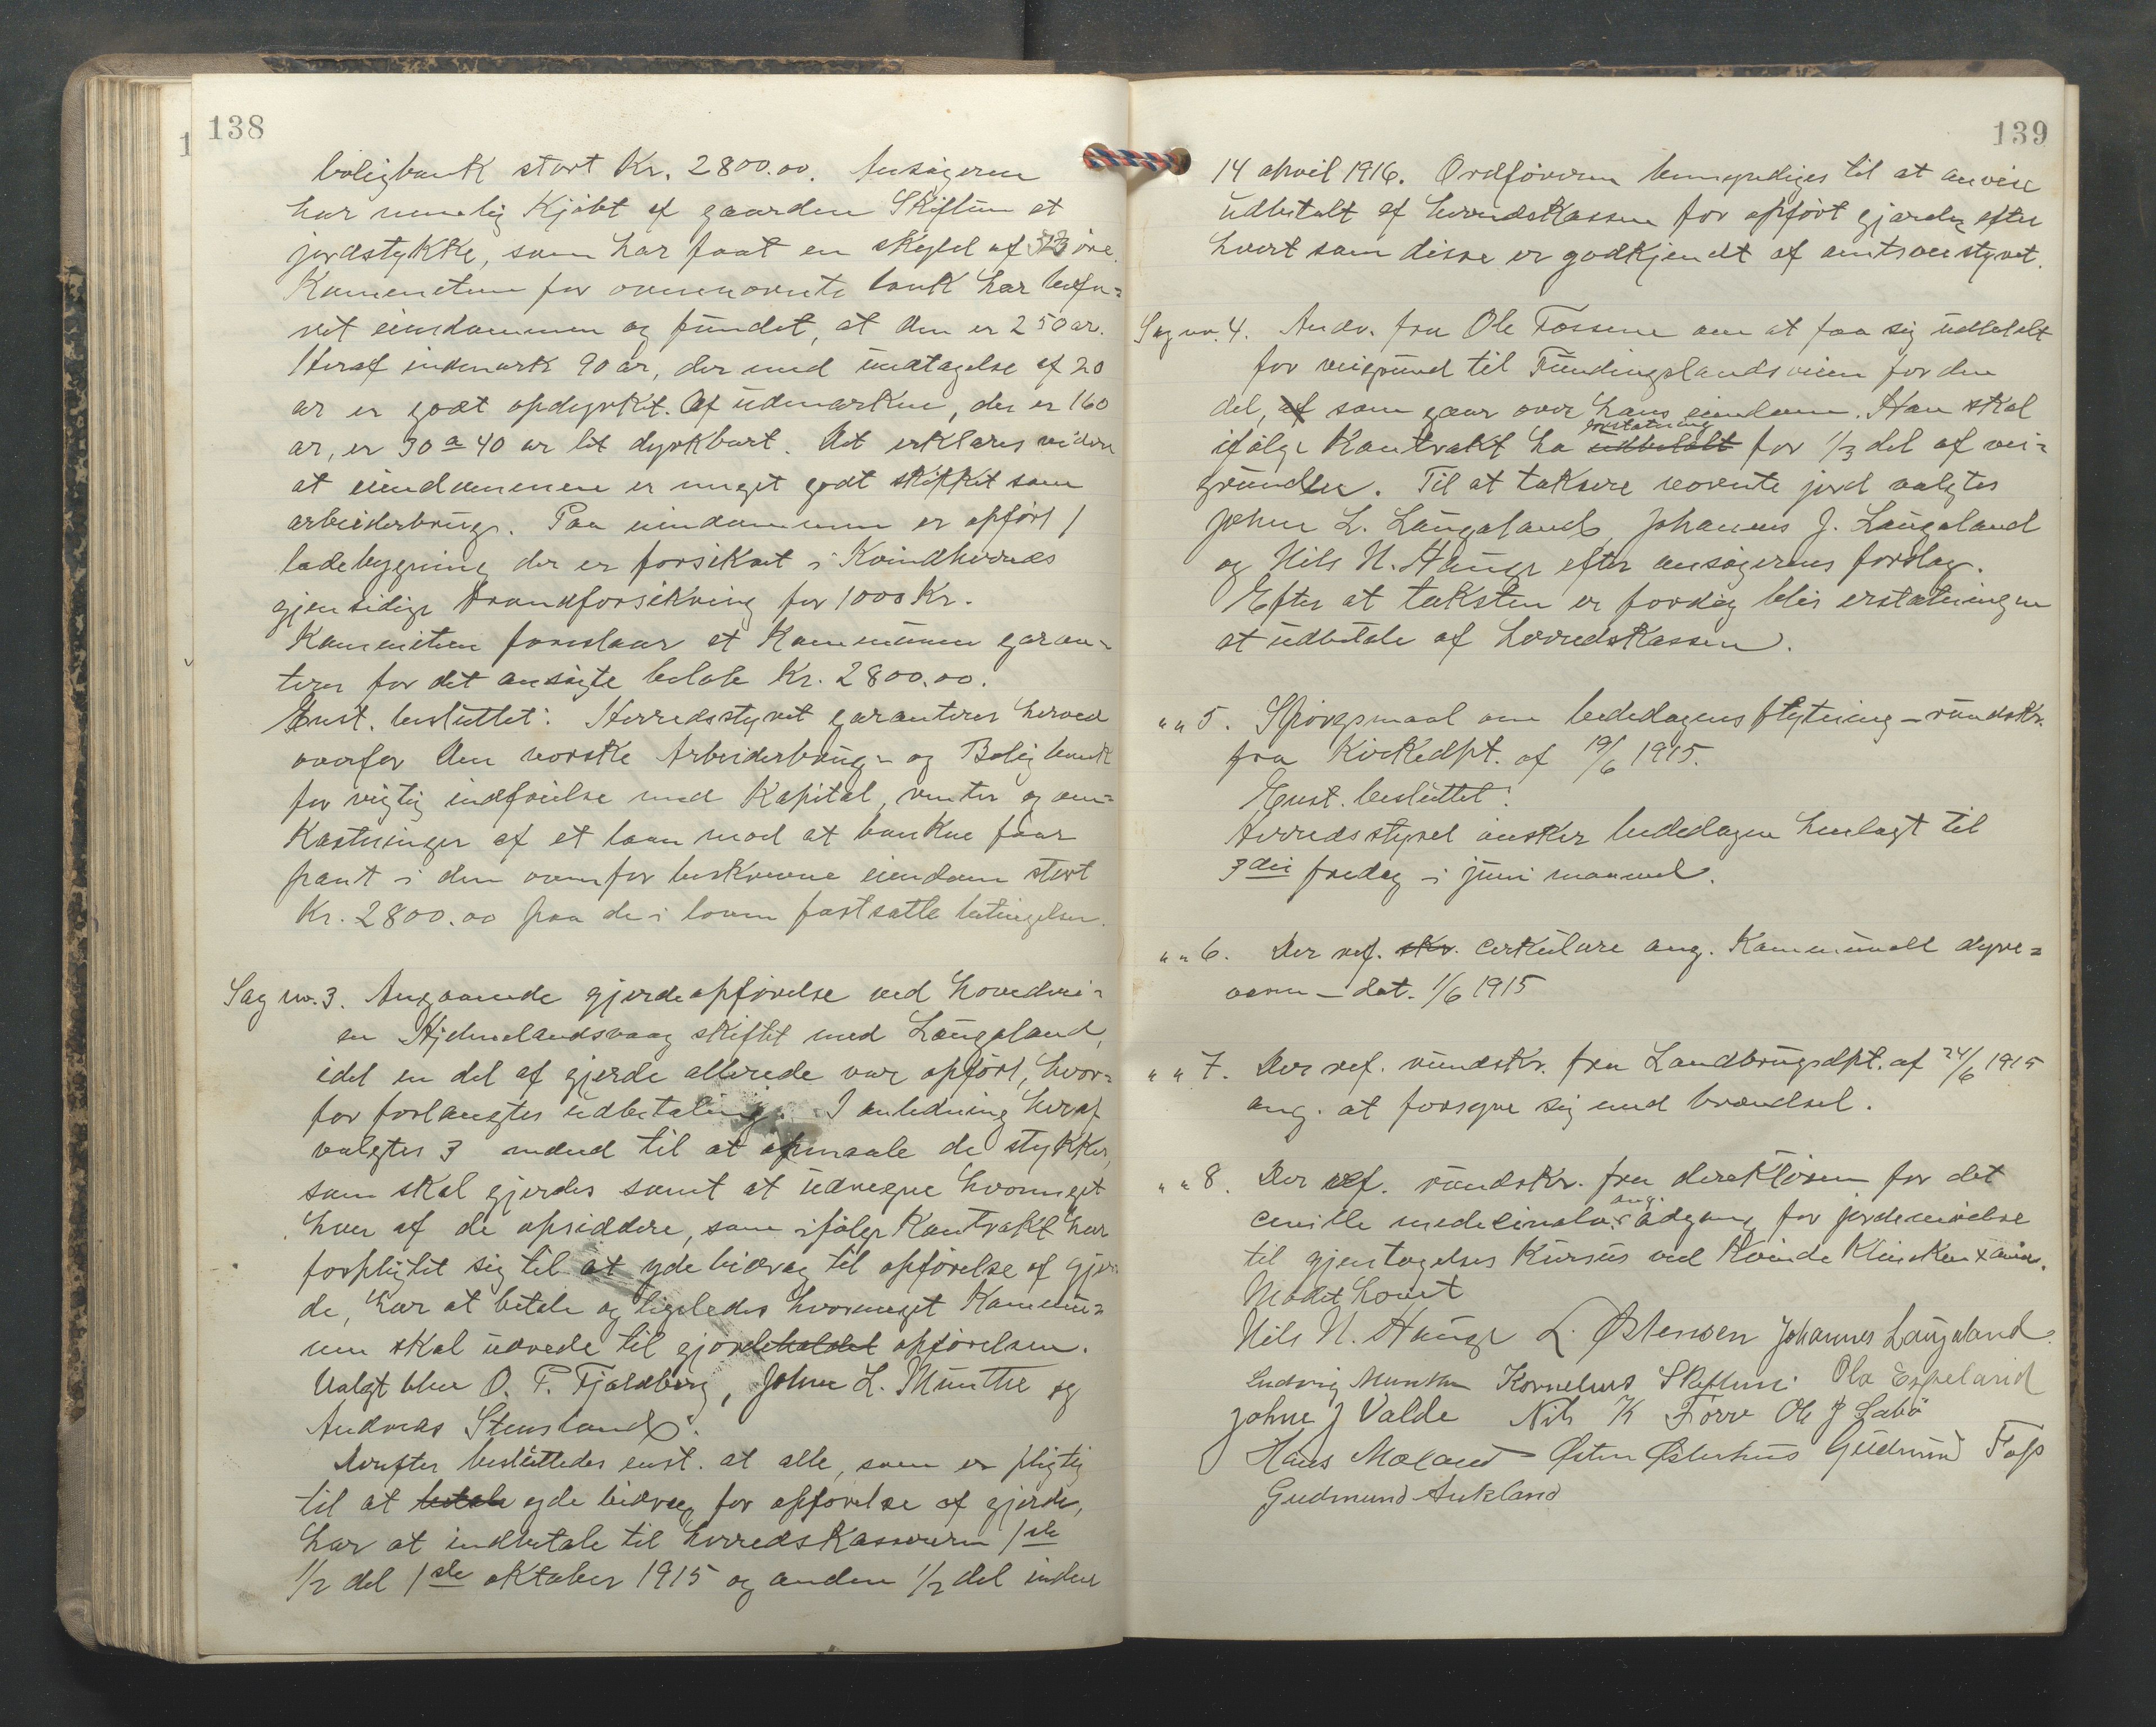 138
boligbank stort Kr. 2800.00. Ansøgeren
har nemlig Kjøbt af gaarden Skiftun et
jordstykke, som har faat en skyld af øre.
Kommiteen for ovennævnte bank har befa-
ret eiendommen og fundet, at den er 250 ar.
Heraf indmark 90 ar, der med undtagelse af 20
ar er godt opdyrket. Af udmarken, der er 160
ar, er 30 a 40 ar let dyrkbart. Det erklæres videre
at eiendommen er meget godt skikket som
arbeiderbrug. Paa eiendommen er opført 1
ladebygning der er forsikret i Kvindherreds
gjensidige brandforsikring for 1000 Kr.
Kommiteen foreslaar at Kommunen garan-
terer for det ansøgte beløb Kr. 2800.00.
Enst. besluttet: Herredsstyret garanterer herved
overfor Den norske Arbeiderbrug- og Boligbank
for rigtig indfrielse med Kapital, renter og om-
kostninger af et laan mod at banken faar
pant i den ovenfor beskrevne eiendom stort
Kr. 2800.00 paa de i loven fastsatte betingelser.
Sag nr. 3. Angaaende gjerdeopførelse ved hovedvei-
en Hjelmelandsvaag skiftet med Laugaland,
idet en del af gjerde allerede var opført, hvor-
for forlangtes udbetaling. I anledning heraf
valgtes 3 mænd til at opmaale de stykker,
som skal gjerdes samt at udregne hvormeget
hver af de opsiddere, som ifølge Kontrakt har
forpligtet sig til at yde bidrag til opførelse af gjer-
de, har at betale og ligeledes hvormeget Kommu-
nen skal udrede til gjerdeholdet opførelsen.
Valgt blev O. P. Fjeldberg, Johne L. Munthe og
Andreas Stensland.
Derefter besluttedes enst. at alle, som er pligtig
til at betale yde bidrag for opførelse af gjerde,
har at indbetale til herredskassereren 1ste
1/2 del 1ste oktober 1915 og anden 1/2 del inden
139
14 april 1916. Ordføreren bemyndiges til at anvise
udbetalt af herredskassen for opført gjerde, efter
hvert som disse er godkjendt af amtsveistyret.
Sag nr. 4. Andr. fra Ole Fossene om at faa sig udbetalt
for veigrund til Fundingslandsveien for den
del, af som gaar over hans eiendom. Han skal
erstatning
ifølge Kontrakt ha udbetalt for 1/3 del af vei-
grunden. Til at taksere nævnte jord valgtes
Johne L. Laugaland, Johannes J. Laugaland
og Nils N. Hauge efter ansøgerens forslag.
Efter at taksten er færdig blir erstatningen
at udbetale af herredskassen.
" " 5. Spørgsmaal om bededagens flytning - rundskr.
fra Kirkedpt. af 19/6 1915.
Enst. besluttet:
Herredsstyret ønsker bededagen henlagt til
3die fredag i juni maaned.
" " 6. Der ref. skr. cirkulære ang. Kommunalt dyre-
værn - dat. 1/6 1915
" " 7. Der ref. rundskr. fra Landbrugsdpt. af 24/6 1915
ang. at forsyne sig med brændsel.
" " 8. Der ref. rundskr. fra direktøren for det
ang.
civille medicinalv. adgang for jordemødre
til gjentagelses Kursus ved Kvinde Kliniken
Mødet hævet
Nils N. Hauge L. Østensen Johannes Laugaland.
Ludvig Munthe Kornelius Skiftun. Ola Espeland
Johne J Valde Nils K Førre Ole J Sabø
Hans Mæland Østen Østerhus Gudmund Foss
Gudmund Aukland